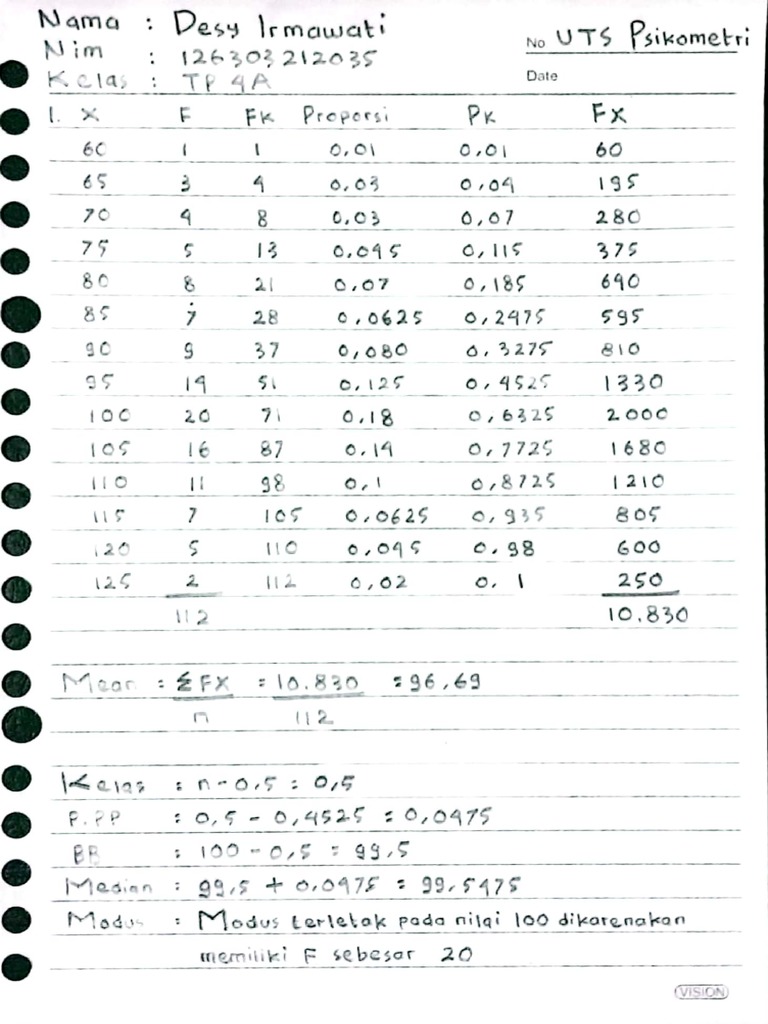 Nama : Desy Irmawati
Nim : 126303212035
Kelas : TP 4A
No UTS Psikometri
Date
1. X F Fk Proporsi Pk FX
60 1 1 0,01 0,01 60
65 3 4 0,03 0,04 195
70 4 8 0,03 0,07 280
75 5 13 0,045 0,115 375
80 8 21 0,07 0,185 640
85 7 28 0,0625 0,2475 595
90 9 37 0,080 0,3275 810
95 14 51 0,125 0,4525 1330
100 20 71 0,18 0,6325 2000
105 16 87 0,14 0,7725 1680
110 11 98 0,1 0,8725 1210
115 7 105 0,0625 0,935 805
120 5 110 0,045 0,98 600
125 2 112 0,02 0,1 250
112 10.830
Mean : ΣFX = 10.830 = 96,69
n 112
Kelas : n - 0,5 = 0,5
P.PP : 0,5 - 0,4525 = 0,0475
BB : 100 - 0,5 = 99,5
Median : 99,5 + 0,0475 = 99,5475
Modus : Modus terletak pada nilai 100 dikarenakan
memiliki F sebesar 20
VISION